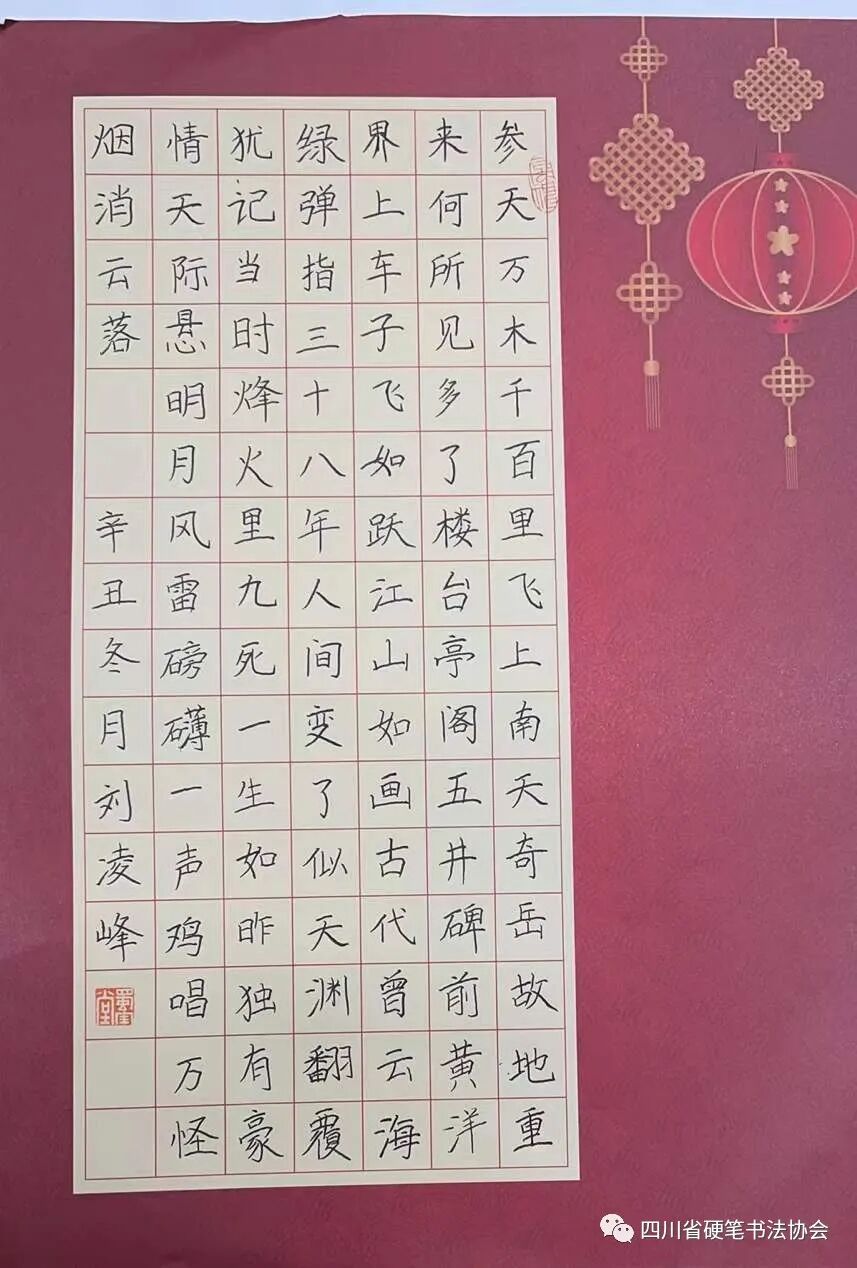 参天万木千百里飞上南天奇岳故地重
来何所见多了楼台亭阁五井碑前黄洋
界上车子飞如跃江山如画古代曾云海
绿弹指三十八年人间变了似天渊翻覆
犹记当时烽火里九死一生如昨独有豪
情天际悬明月风雷磅礴一声鸡唱万怪
烟消云落
辛丑冬月刘凌峰
四川省硬笔书法协会